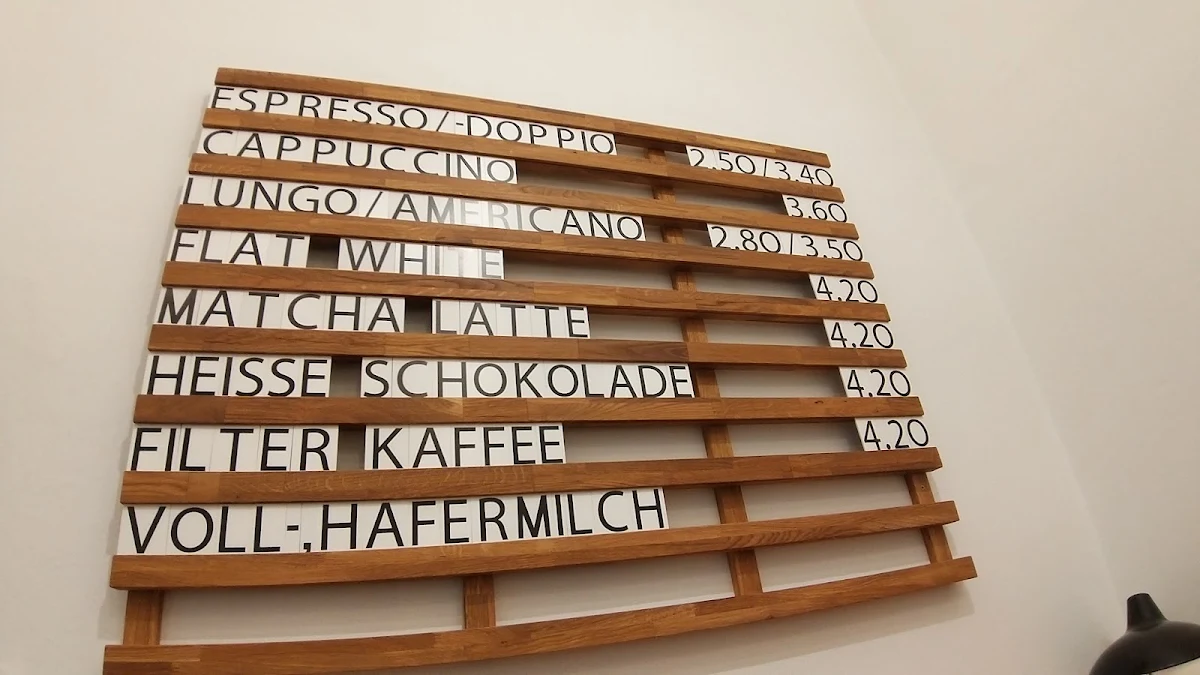 ESPRESSO/-DOPPIO 2.50/3.40
CAPPUCCINO 3.60
LUNGO/AMERICANO 2.80/3.50
FLAT WHITE 4.20
MATCHA LATTE 4.20
HEISSE SCHOKOLADE 4.20
FILTER KAFFEE 4.20
VOLL-,HAFERMILCH